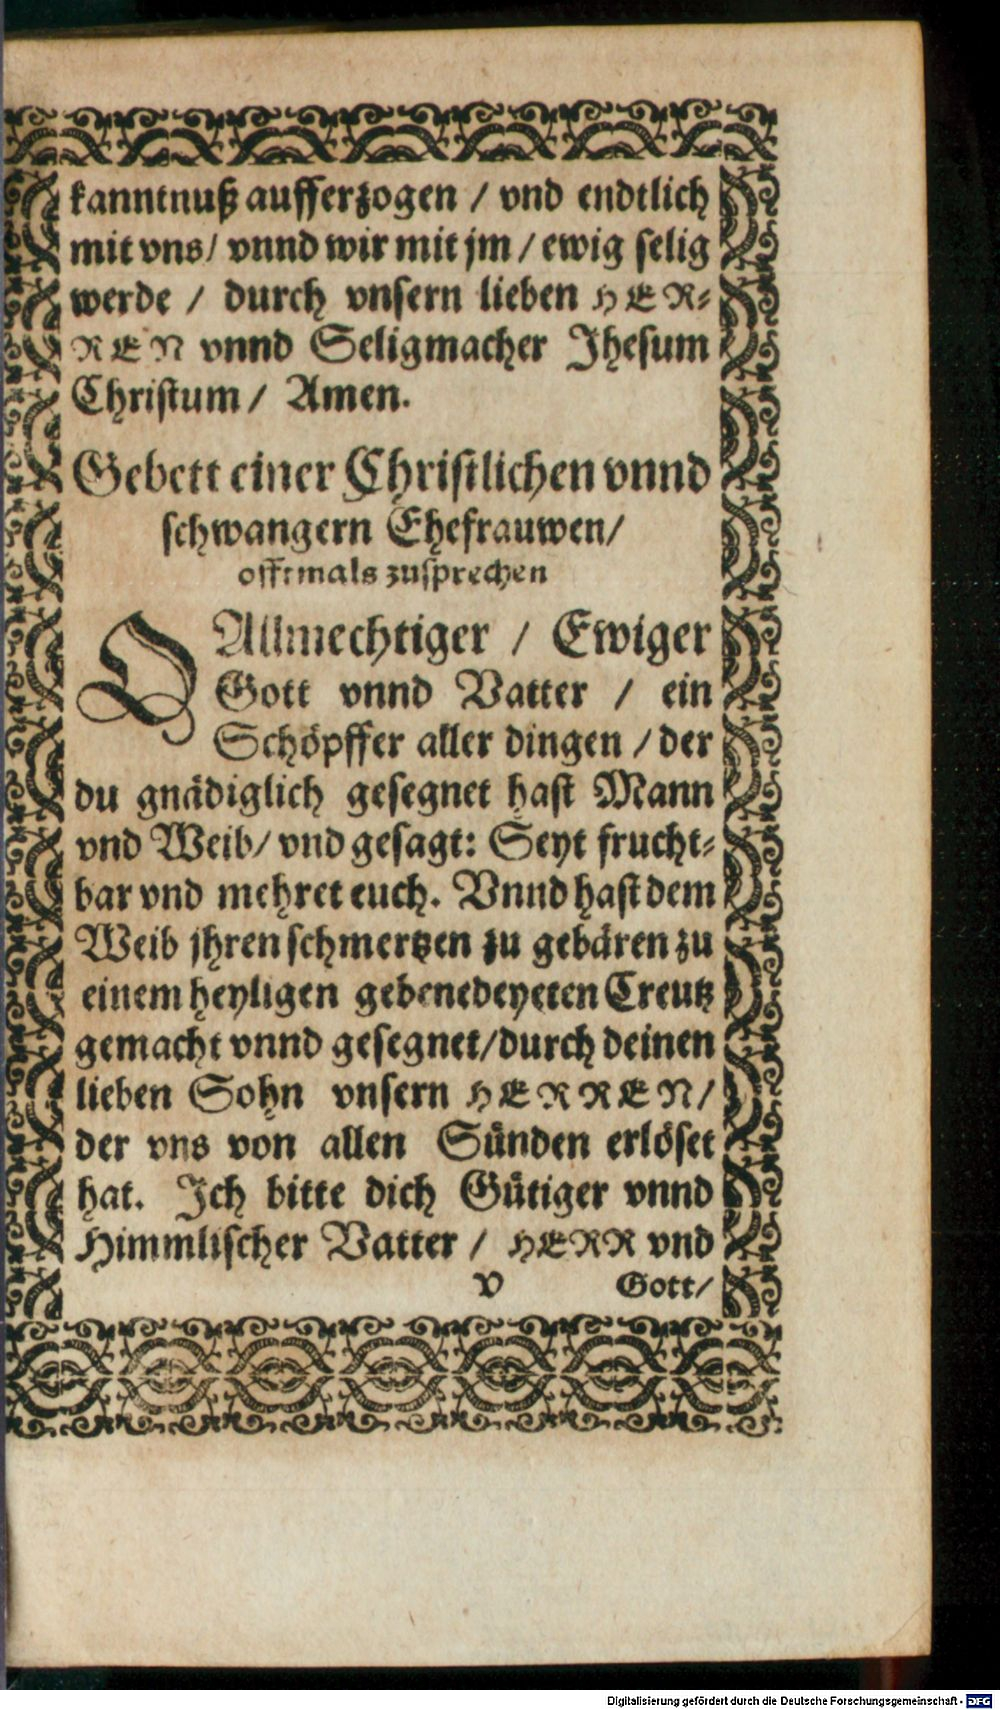 kanntnuß aufferzogen / vnd endtlich
mit vns / vnnd wir mit jm / ewig selig
werde / durch vnsern lieben HER-
REN vnnd Seligmacher Jhesum
Christum / Amen.
Gebett einer Christlichen vnnd
schwangern Ehefrauwen /
offtmals zusprechen
O Allmechtiger / Ewiger
Gott vnnd Vatter / ein
Schöpffer aller dingen / der
du gnädiglich gesegnet hast Mann
vnd Weib / vnd gesagt: Seyt frucht-
bar vnd mehret euch. Vnnd hast dem
Weib jhren schmertzen zu gebären zu
einem heyligen gebenedeyeten Creutz
gemacht vnnd gesegnet / durch deinen
lieben Sohn vnsern HERREN /
der vns von allen Sünden erlöset
hat. Jch bitte dich Gütiger vnnd
Himmlischer Vatter / HERR vnd
v Gott /
Digitalisierung gefördert durch die Deutsche Forschungsgemeinschaft - DFG